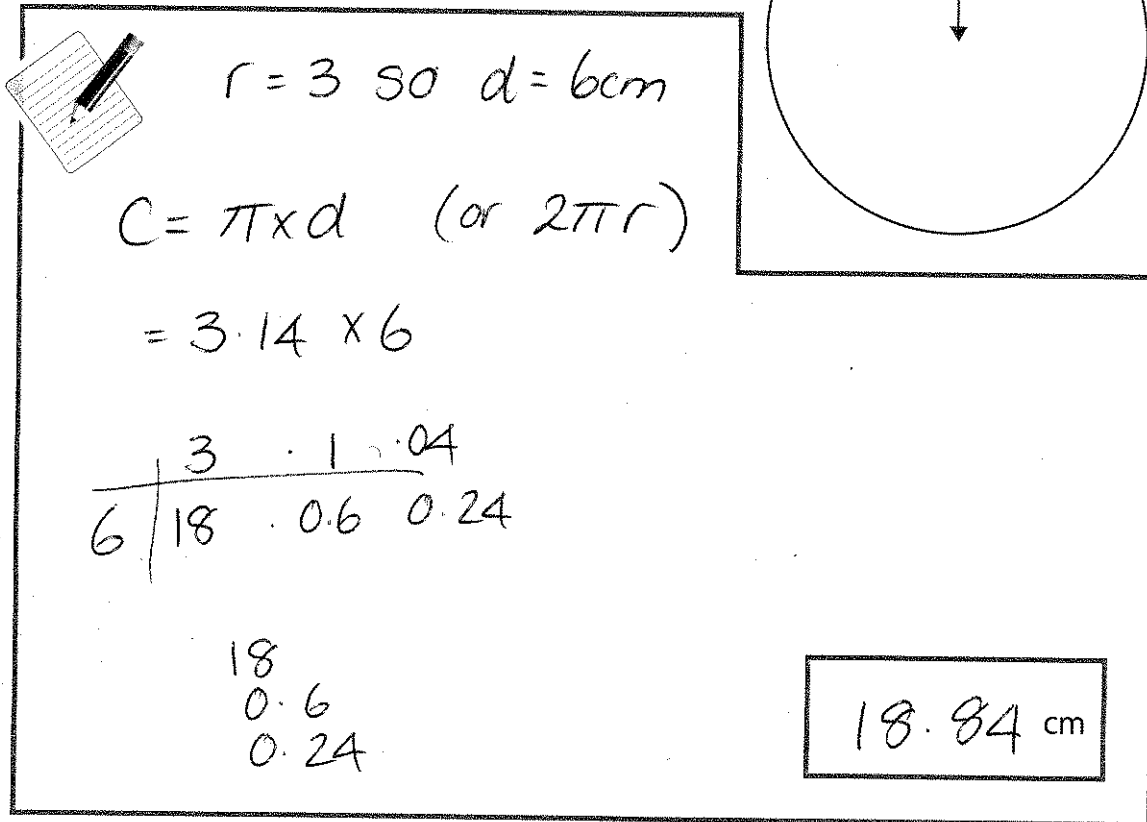 r = 3 so d = 6cm
C = π x d (or 2πr)
= 3.14 x 6
3 . 1 .04
6 18 . 0.6 0.24
18
0.6
0.24
18.84 cm